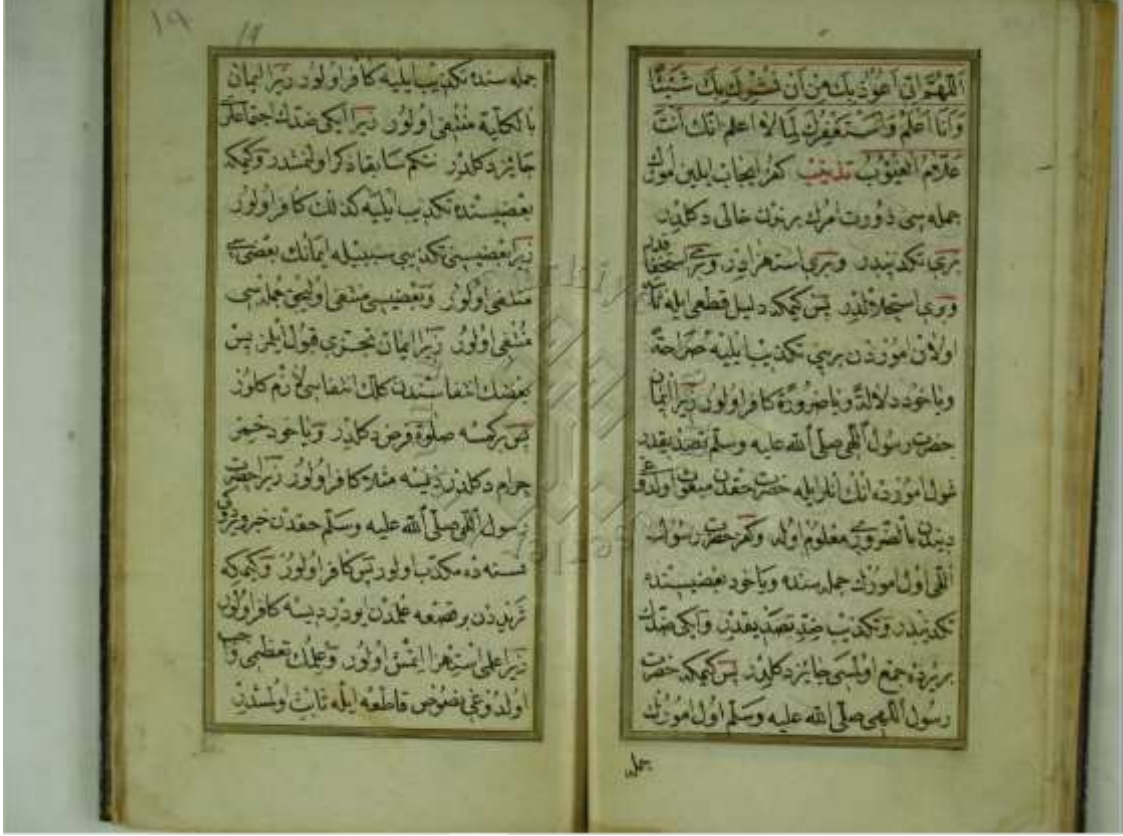 اللهم انى اعوذ بك من ان نشرك بك شيئا
وانا اعلم واستغفرك لما لا اعلم انك انت
علام الغيوب تذنيب كفر ايجاب ايلين امورك
جمله سى دورت امرك برندن خالى دكلدر
برى تكذيبدر وبرى استهزادر وبرى استخفافدر
وبرى استحلالدر پس كيمكه دليل قطعى ايله ثابت
اولان اموردن برينى تكذيب ايليه صراحة
وياخود دلالة وياضرورة كافر اولور زيرا ايمان
حضرت رسول اللهى صلى الله عليه وسلم تصديقدر
شول امورده انك انلر ايله حضرت حقدن مبعوث اولدوغى
دينده بالضرورى معلوم اولد وكفر حضرت رسول
اللهى اول امورك جمله سنده وياخود بعضيسنده
تكذيبدر وتكذيب ضد تصديقدر وايكى ضدك
بريرده جمع اولمسى جايز دكلدر پس كيمكه حضرت
رسول اللهى صلى الله عليه وسلم اول امورك
جمله
19 ١٩
جمله سنده تكذيب ايليه كافر اولور زيرا ايمان
بالكلية منتفى اولور زيرا ايكى ضدك اجتماعلرى
جايز دكلدر نتكم سابقا ذكر اولنمشدر وكيمكه
بعضيسنده تكذيب ايليه كذلك كافر اولور
زيرا بعضيسنى تكذيبى سببيله ايمانك بعضيسى
منتفى اولور وبعضيسى منتفى اوليجق جمله سى
منتفى اولور زيرا ايمان تجزى قبول ايلمز پس
بعضك انتفاسندن كلك انتفاسى لازم كلور
پس بركمسه صلوة فرض دكلدر وياخود خمر
حرام دكلدر ديسه مثلا كافر اولور زيرا حضرت
رسول اللهى صلى الله عليه وسلم حقدن خبر ويردوكى
نسنه ده مكذب اولور پس كافر اولور وكيمكه
ثريددن بر قصعه علمدن ايودر ديسه كافر اولور
زيرا علمى استهزا ايتمش اولور وعلمك تعظيمى واجب
اولدوغى نصوص قاطعه ايله ثابت اولمشدر